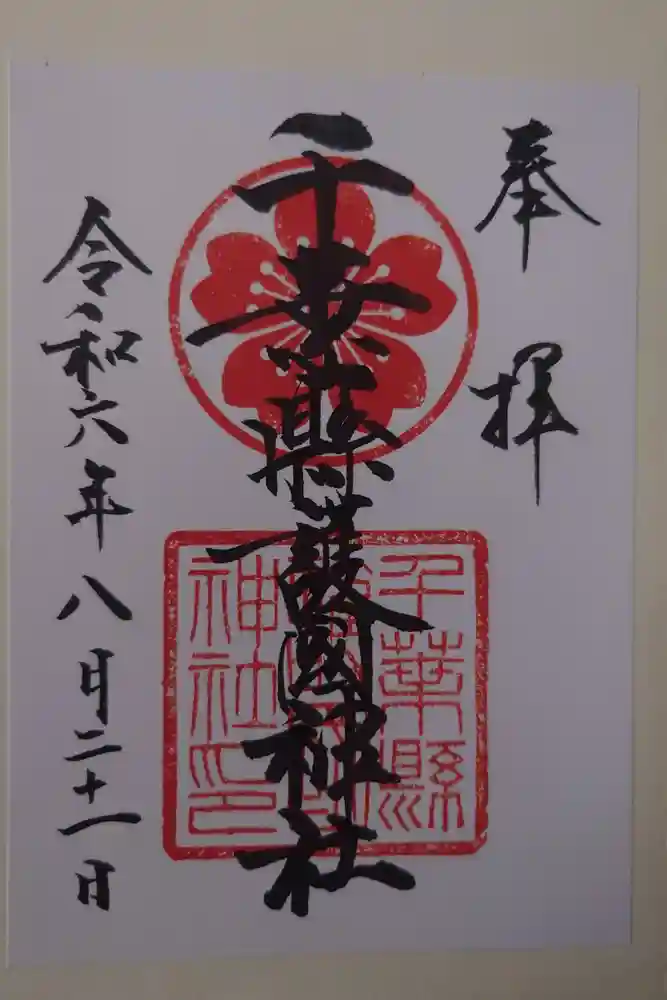 奉拝
千葉縣護國神社
千葉縣
護國神社
神社印
令和六年八月二十一日